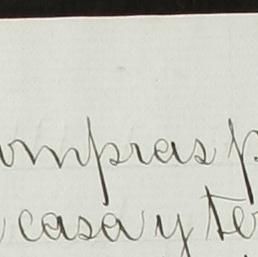 ompras p
casa y te